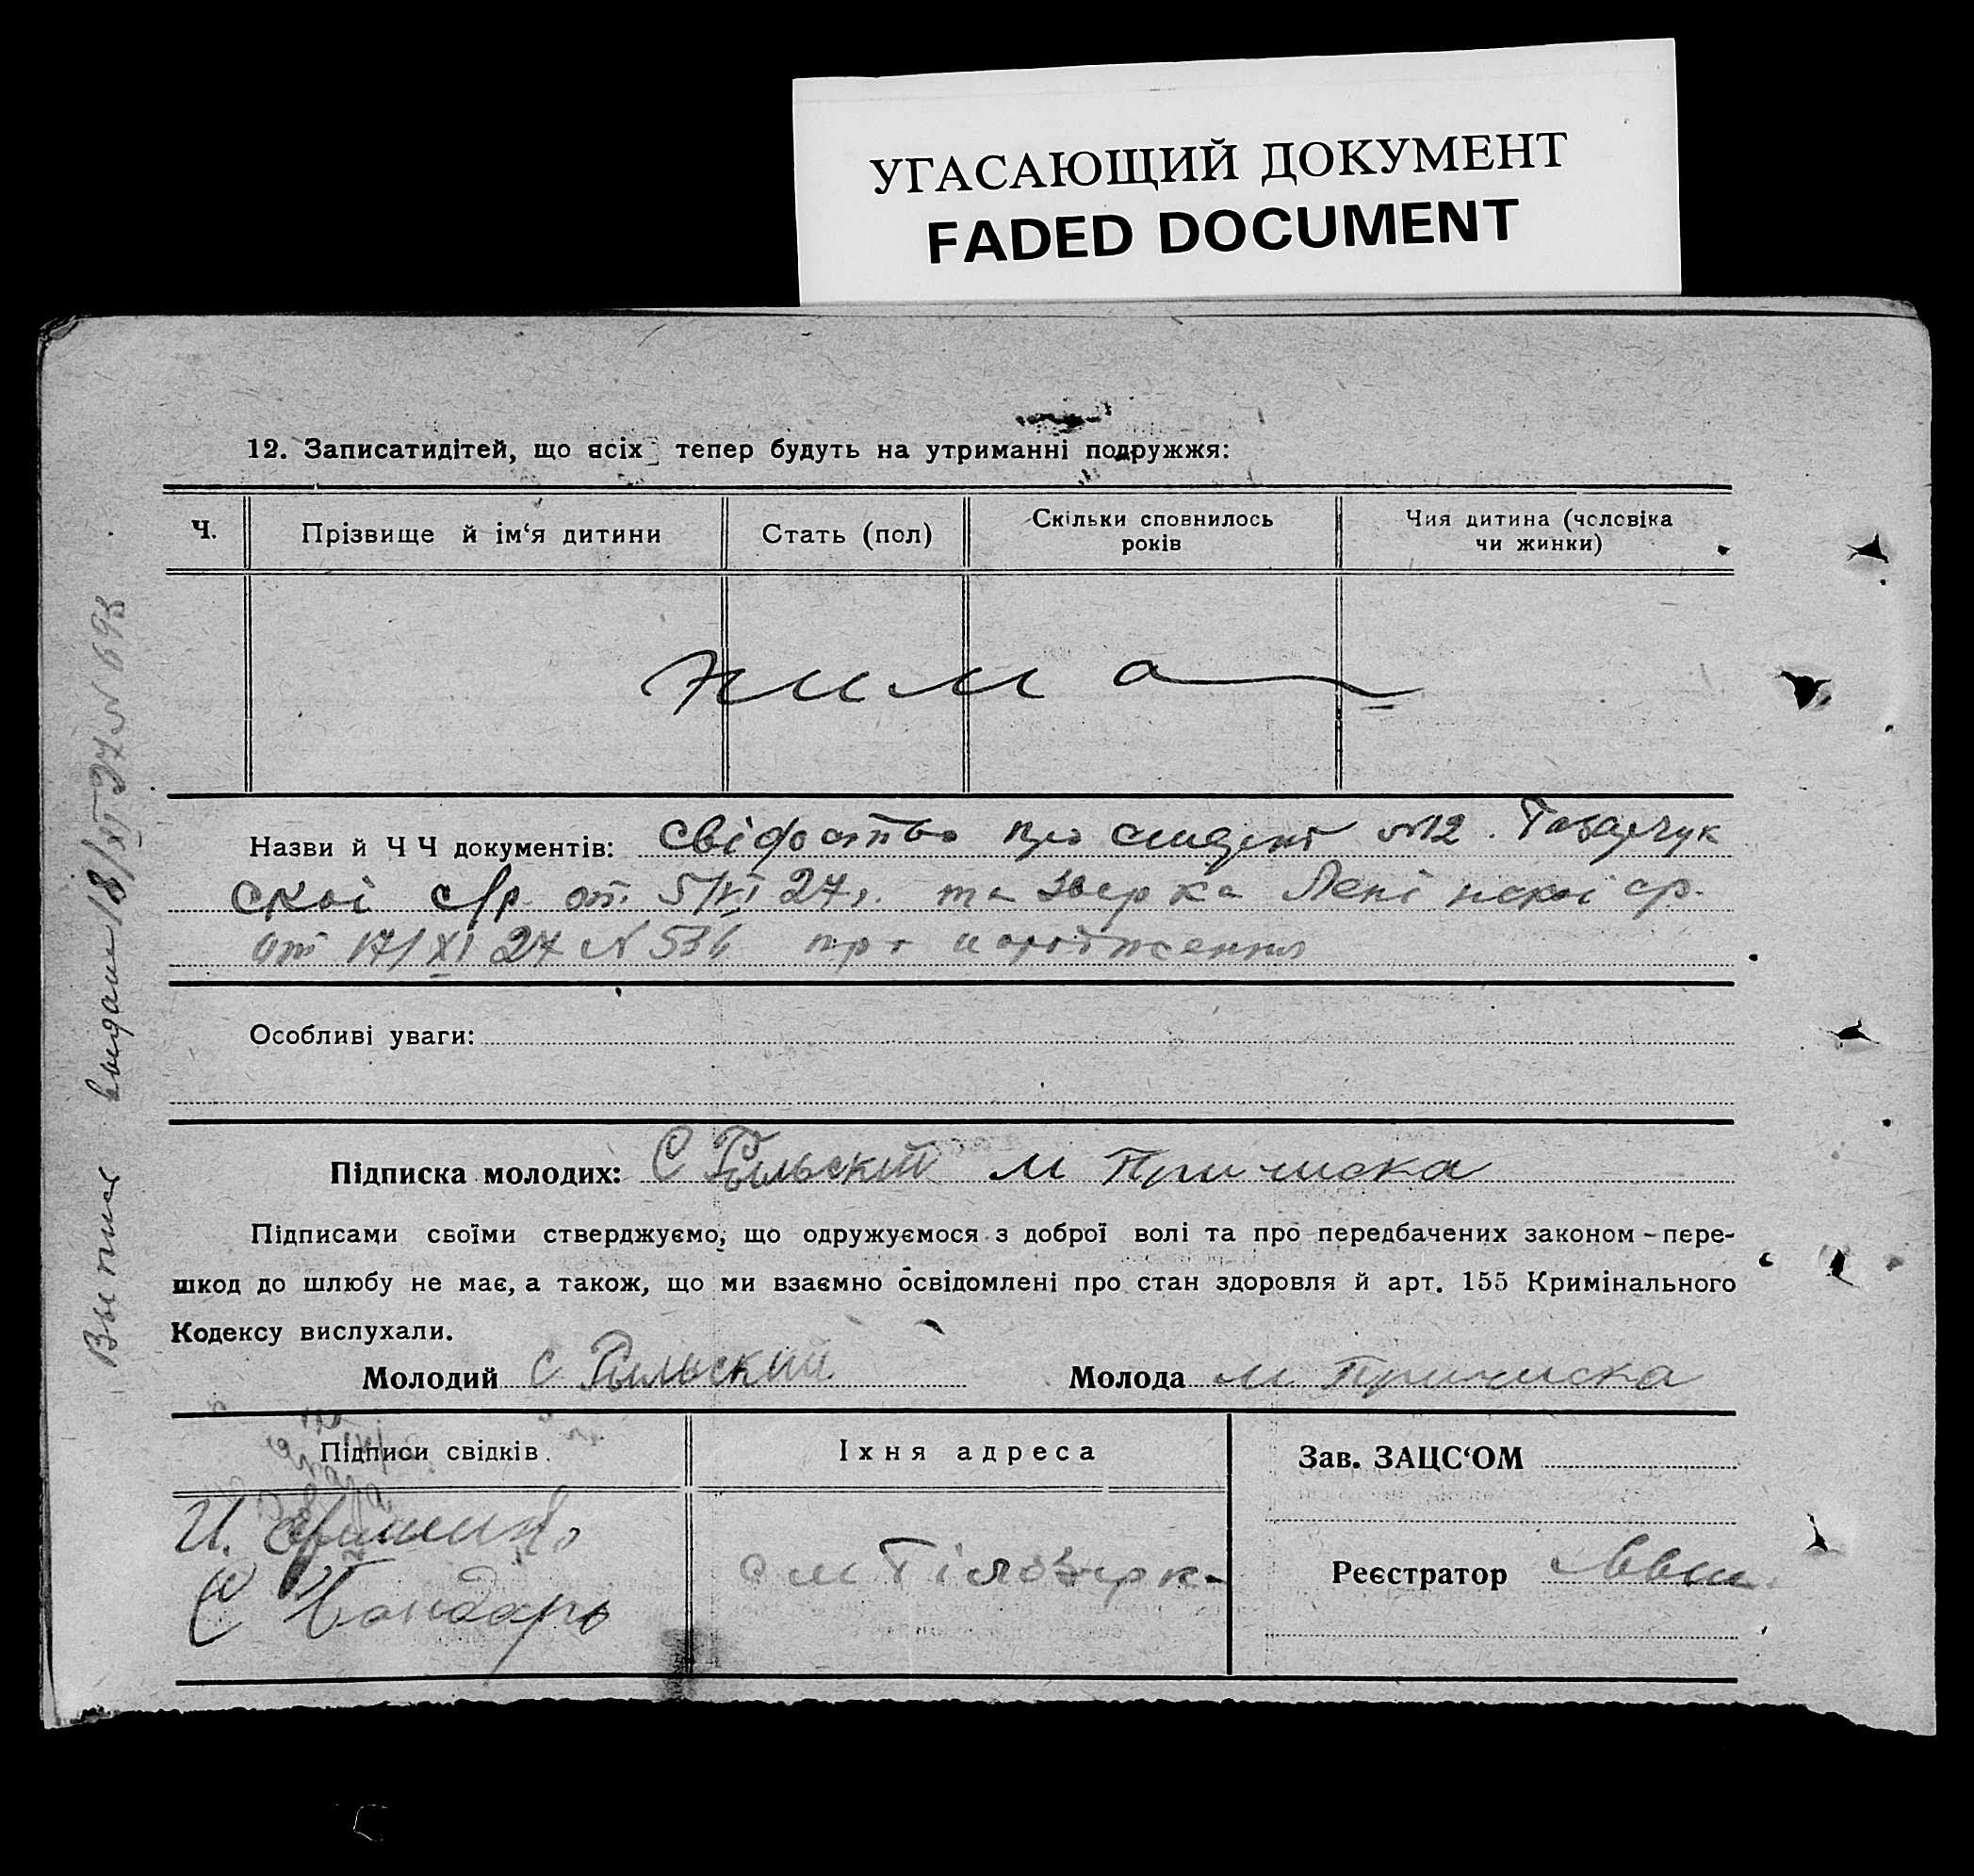 УГАСАЮЩИЙ ДОКУМЕНТ
FADED DOCUMENT
12. Записатидітей, що всіх тепер будуть на утриманні подружжя:
Ч.
Прізвище й ім‘я дитини
Стать (пол)
Скільки сповнилось
років
Чия дитина (чоловіка
чи жинки)
нима
Назви й Ч Ч документів: свідоство про N12.
ској с/р. от. 5/VI 27г. та ср.
от 17/XI 27 N 536 про народження
Особливі уваги:
Підписка молодих: С Рыльский М Причиска
Підписами своїми стверджуємо, що одружуємося з доброї волі та про передбачених законом-пере-
шкод до шлюбу не має, а також, що ми взаємно освідомлені про стан здоровля й арт. 155 Кримінального
Кодексу вислухали.
Молодий С Рыльский Молода М Причиска
Підписи свідків.
Їхня адреса
Зав. ЗАЦС‘ОМ
И.
С Бондарь
см Тілозірка
Реєстратор
Выпис выдан 18/XI 27 N 693